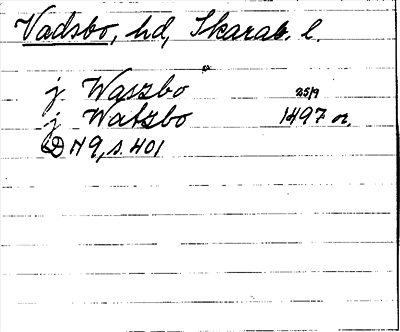 Vadsbo, hd, Skarab. l.
j Waszbo
j Watzbo 25/9 1497 or.
D N9, s. 401